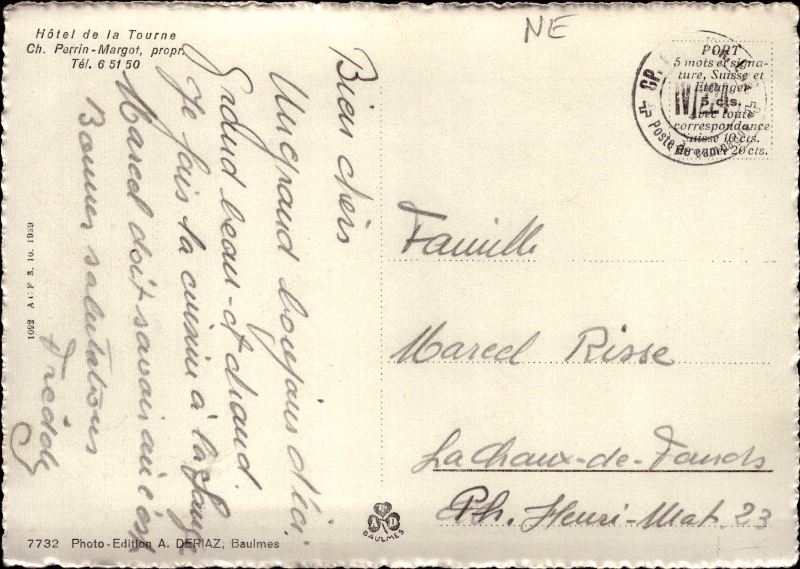 Hôtel de la Tourne
Ch. Perrin-Margot, propr.
Tél. 6 51 50
NE
PORT
5 mots et signa-
ture, Suisse et
Etranger
5 cts.
Avec toute
correspondance
Suisse 10 cts.
Etranger 20 cts.
Poste de campagne
Bien chers
Un grand boujour d'ici.
Grand beau et chaud.
Je fais la cuisine à la
Marcel doit savoir où c'est
Bonnes salutations
Frédy
Famille
Marcel Risse
La Chaux-de-Fonds
Ph. Henri-Mat. 23
1092 A C F 3. 10. 1939
7732 Photo-Edition A. DERIAZ, Baulmes
A D
BAULMES